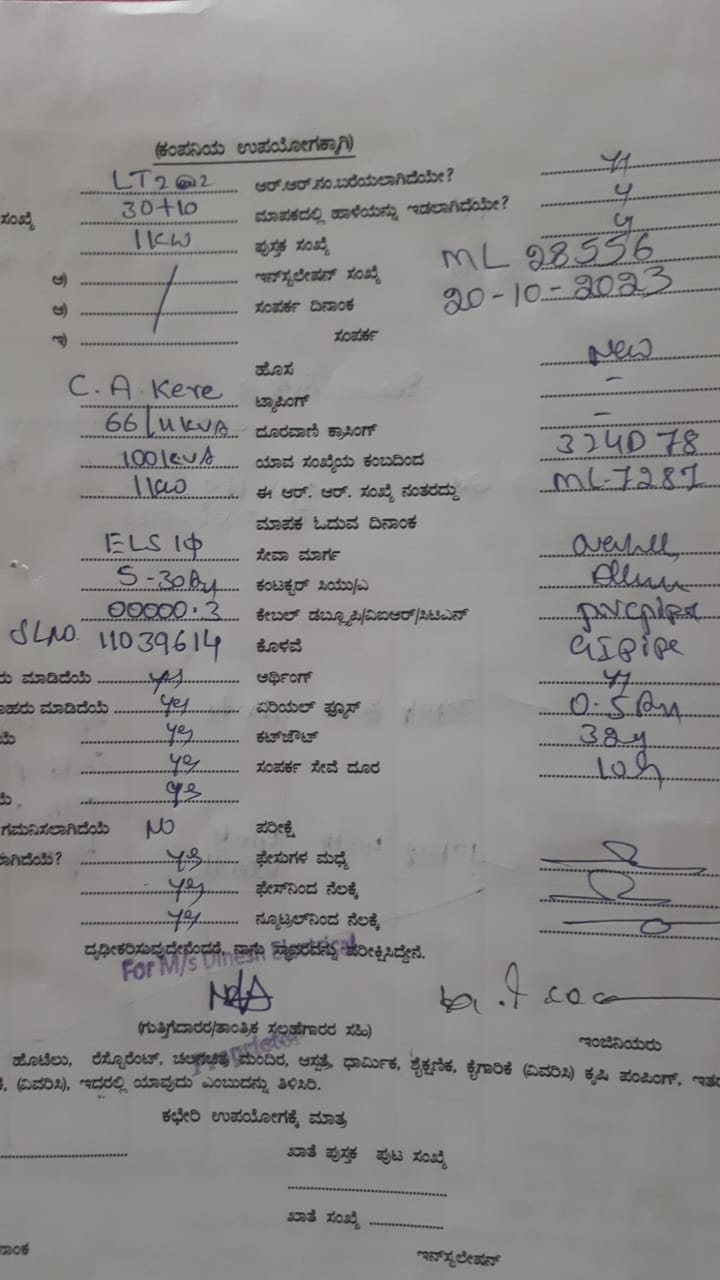 (ಕಂಪನಿಯ ಉಪಯೋಗಕ್ಕಾಗಿ)
LT2 ಆರ್.ಆರ್.ನಂ.ಬರೆಯಲಾಗಿದೆಯೇ? ys
ಸಂಖ್ಯೆ 30+10 ಮಾಪಕದಲ್ಲಿ ಹಾಳೆಯನ್ನು ಇಡಲಾಗಿದೆಯೇ? y
1KW ಪುಸ್ತಕ ಸಂಖ್ಯೆ y
ಅ) ಇನ್‌ಸ್ಟಲೇಷನ್ ಸಂಖ್ಯೆ ML 28556
ಆ) ಸಂಪರ್ಕ ದಿನಾಂಕ 20-10-2023
ಇ) ಸಂಪರ್ಕ
ಹೊಸ New
C. A. Kere ಟ್ಯಾಪಿಂಗ್ -
66/11KVA ದೂರವಾಣಿ ಕ್ರಾಸಿಂಗ್ -
100KVA ಯಾವ ಸಂಖ್ಯೆಯ ಕಂಬದಿಂದ 324D 78
11KW ಈ ಆರ್. ಆರ್. ಸಂಖ್ಯೆ ನಂತರದ್ದು ML-7287
ಮಾಪಕ ಓದುವ ದಿನಾಂಕ
ELS 1Φ ಸೇವಾ ಮಾರ್ಗ
5-30 ಕಂಟಕ್ಟರ್ ಸಿಯು/ಎ
00000.3 ಕೇಬಲ್ ಡಬ್ಲ್ಯೂಪಿ/ವಿಐಆರ್/ಸಿಟಿಎನ್
SLNO. 11039614 ಕೊಳವೆ GI pipe
ರು ಮಾಡಿದೆಯೆ yes ಅರ್ಥಿಂಗ್ ys
ಾಹರು ಮಾಡಿದೆಯೆ yes ಏರಿಯಲ್ ಫ್ಯೂಸ್ 0.5
ಯೆ yes ಕಟ್‌ಔಟ್ 32
yes ಸಂಪರ್ಕ ಸೇವೆ ದೂರ
ಯೆ yes
ಗಮನಿಸಲಾಗಿದೆಯೆ NO ಪರೀಕ್ಷೆ
ಾಗಿದೆಯೆ? yes ಫೇಸುಗಳ ಮಧ್ಯೆ
yes ಫೇಸ್‌ನಿಂದ ನೆಲಕ್ಕೆ
yes ನ್ಯೂಟ್ರಲ್‌ನಿಂದ ನೆಲಕ್ಕೆ
ದೃಢೀಕರಿಸುವುದೇನೆಂದರೆ, ನಾನು ಸ್ಥಾವರವನ್ನು ಪರೀಕ್ಷಿಸಿದ್ದೇನೆ.
For M/s Dinesh Electrical
(ಗುತ್ತಿಗೆದಾರರ/ತಾಂತ್ರಿಕ ಸಲಹೆಗಾರರ ಸಹಿ) ಇಂಜಿನಿಯರು
Proprietor
ಹೊಟೆಲು, ರೆಸ್ಟೊರೆಂಟ್, ಚಲನಚಿತ್ರ ಮಂದಿರ, ಆಸ್ಪತ್ರೆ, ಧಾರ್ಮಿಕ, ಶೈಕ್ಷಣಿಕ, ಕೈಗಾರಿಕೆ (ವಿವರಿಸಿ) ಕೃಷಿ ಪಂಪಿಂಗ್, ಇತರ
(ವಿವರಿಸಿ), ಇದರಲ್ಲಿ ಯಾವುದು ಎಂಬುದನ್ನು ತಿಳಿಸಿರಿ.
ಕಛೇರಿ ಉಪಯೋಗಕ್ಕೆ ಮಾತ್ರ
ಖಾತೆ ಪುಸ್ತಕ ಪುಟ ಸಂಖ್ಯೆ
ಖಾತೆ ಸಂಖ್ಯೆ
ನಾಂಕ ಇನ್‌ಸ್ಟಲೇಷನ್